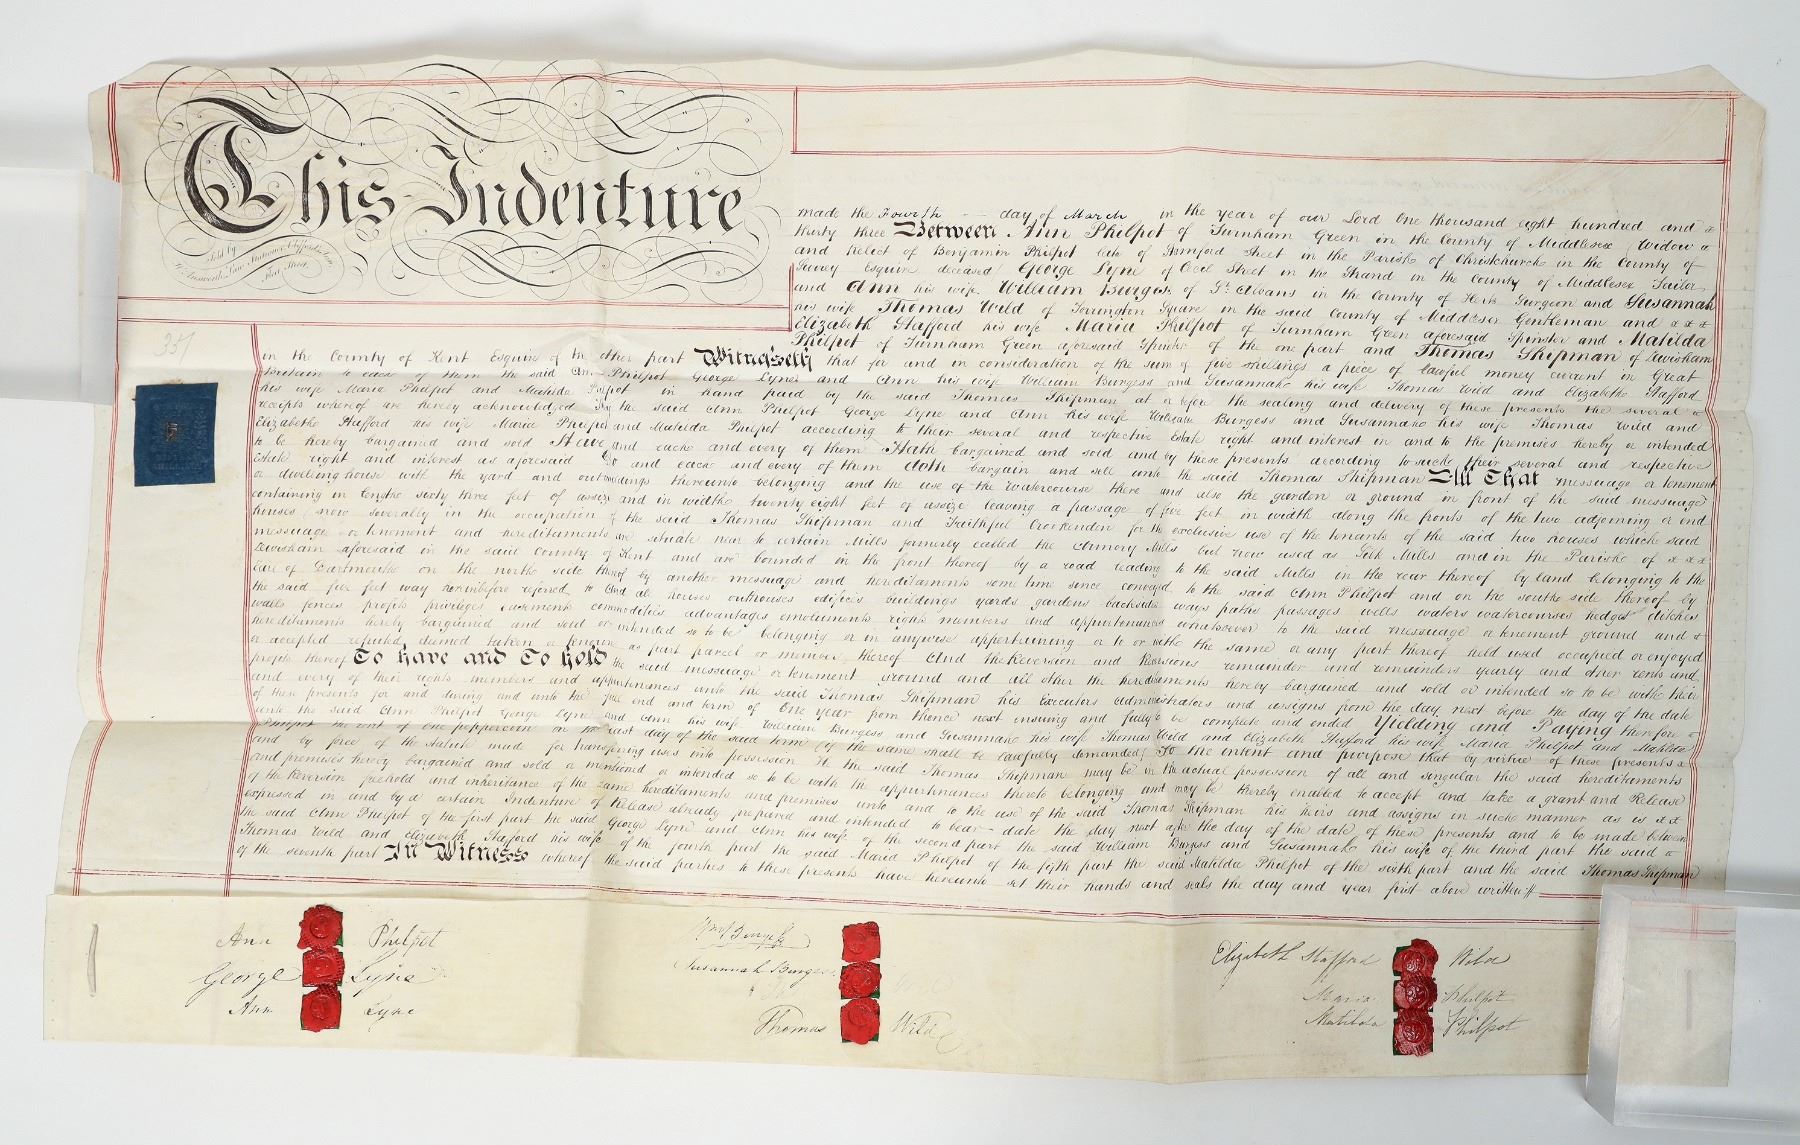 This Indenture
Sold by
Fleet Street
made the Fourth day of March in the year of our Lord One thousand eight hundred and x
thirty three Between Ann Philpot of Turnham Green in the County of Middlesex Widow
and Relict of Benjamin Philpot late of Stamford Street in the Parish of Christchurch in the County of
Surrey Esquire deceased George Lyne of Cecil Street in the Strand in the County of Middlesex Tailor
and Ann his wife William Burgess of St. Albans in the County of Herts Surgeon and Susannah
his wife Thomas Wild of Torrington Square in the said County of Middlesex Gentleman and x x x
Elizabeth Stafford his wife Maria Philpot of Turnham Green aforesaid Spinster and Matilda
Philpot of Turnham Green aforesaid Spinster of the one part and Thomas Shipman of Lewisham
351
in the County of Kent Esquire of the other part Witnesseth that for and in consideration of the sum of five shillings a piece of lawful money current in Great
Britain to each of them the said Ann Philpot George Lyne and Ann his wife William Burgess and Susannah his wife Thomas Wild and Elizabeth Stafford
his wife Maria Philpot and Matilda Philpot in hand paid by the said Thomas Shipman at or before the sealing and delivery of these presents the several
receipts whereof are hereby acknowledged they the said Ann Philpot George Lyne and Ann his wife William Burgess and Susannah his wife Thomas Wild and
Elizabeth Stafford his wife Maria Philpot and Matilda Philpot according to their several and respective Estate right and interest in and to the premises hereby or intended
to be hereby bargained and sold Have and each and every of them Hath bargained and sold and by these presents according to such their several and respective
Estate right and interest as aforesaid Do and each and every of them doth bargain and sell unto the said Thomas Shipman All That messuage or tenement
or dwelling house with the yard and outbuildings thereunto belonging and the use of the watercourse there and also the garden or ground in front of the said messuage
containing in length sixty three feet of assize and in width twenty eight feet of assize leaving a passage of five feet in width along the fronts of the two adjoining or end
houses now severally in the occupation of the said Thomas Shipman and Faithful Crockenden for the exclusive use of the tenants of the said two houses which said
messuage or tenement and hereditaments are situate near to certain Mills formerly called the Armory Mills but now used as Silk Mills and in the Parish of x x x
Lewisham aforesaid in the said County of Kent and are bounded in the front thereof by a road leading to the said Mills in the rear thereof by land belonging to the
Earl of Dartmouth on the north side thereof by another messuage and hereditaments some time since conveyed to the said Ann Philpot and on the south side thereof by
the said five feet way hereinbefore referred to And all houses outhouses edifices buildings yards gardens backsides ways paths passages wells waters watercourses hedges ditches
walls fences profits privileges easements commodities advantages emoluments rights members and appurtenances whatsoever to the said messuage or tenement ground and x
hereditaments hereby bargained and sold or intended so to be belonging or in anywise appertaining or to or with the same or any part thereof held used occupied or enjoyed
or accepted reputed deemed taken or known as part parcel or member thereof And the Reversion and Reversions remainder and remainders yearly and other rents and
profits thereof To have and To hold the said messuage or tenement ground and all other the hereditaments hereby bargained and sold or intended so to be with their
and every of their rights members and appurtenances unto the said Thomas Shipman his Executors administrators and assigns from the day next before the day of the date
of these presents for and during and unto the full end and term of One year from thence next ensuing and fully to be complete and ended Yielding and Paying therefore
unto the said Ann Philpot George Lyne and Ann his wife William Burgess and Susannah his wife Thomas Wild and Elizabeth Stafford his wife Maria Philpot and Matilda
Philpot the rent of one peppercorn on the last day of the said term (if the same shall be lawfully demanded) To the intent and purpose that by virtue of these presents x
and by force of the statute made for transferring uses into possession He the said Thomas Shipman may be in the actual possession of all and singular the said hereditaments
and premises hereby bargained and sold or mentioned or intended so to be with the appurtenances thereto belonging and may be thereby enabled to accept and take a grant and Release
of the Reversion freehold and inheritance of the same hereditaments and premises unto and to the use of the said Thomas Shipman his heirs and assigns in such manner as is x x
expressed in and by a certain Indenture of Release already prepared and intended to bear date the day next after the day of the date of these presents and to be made between
the said Ann Philpot of the first part the said George Lyne and Ann his wife of the second part the said William Burgess and Susannah his wife of the third part the said
Thomas Wild and Elizabeth Stafford his wife of the fourth part the said Maria Philpot of the fifth part the said Matilda Philpot of the sixth part and the said Thomas Shipman
of the seventh part In Witness whereof the said parties to these presents have hereunto set their hands and seals the day and year first above written
Ann Philpot
George Lyne
Ann Lyne
Wm Burgess
Susannah Burgess
Thomas Wild
Elizabeth Stafford Wild
Maria Philpot
Matilda Philpot